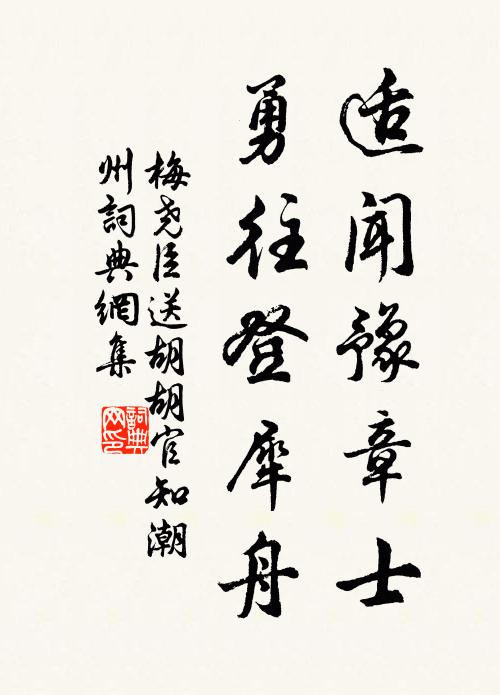 适闻豫章士
勇往登犀舟
梅尧臣送胡胡官知潮
州詞典網集
詞典网印